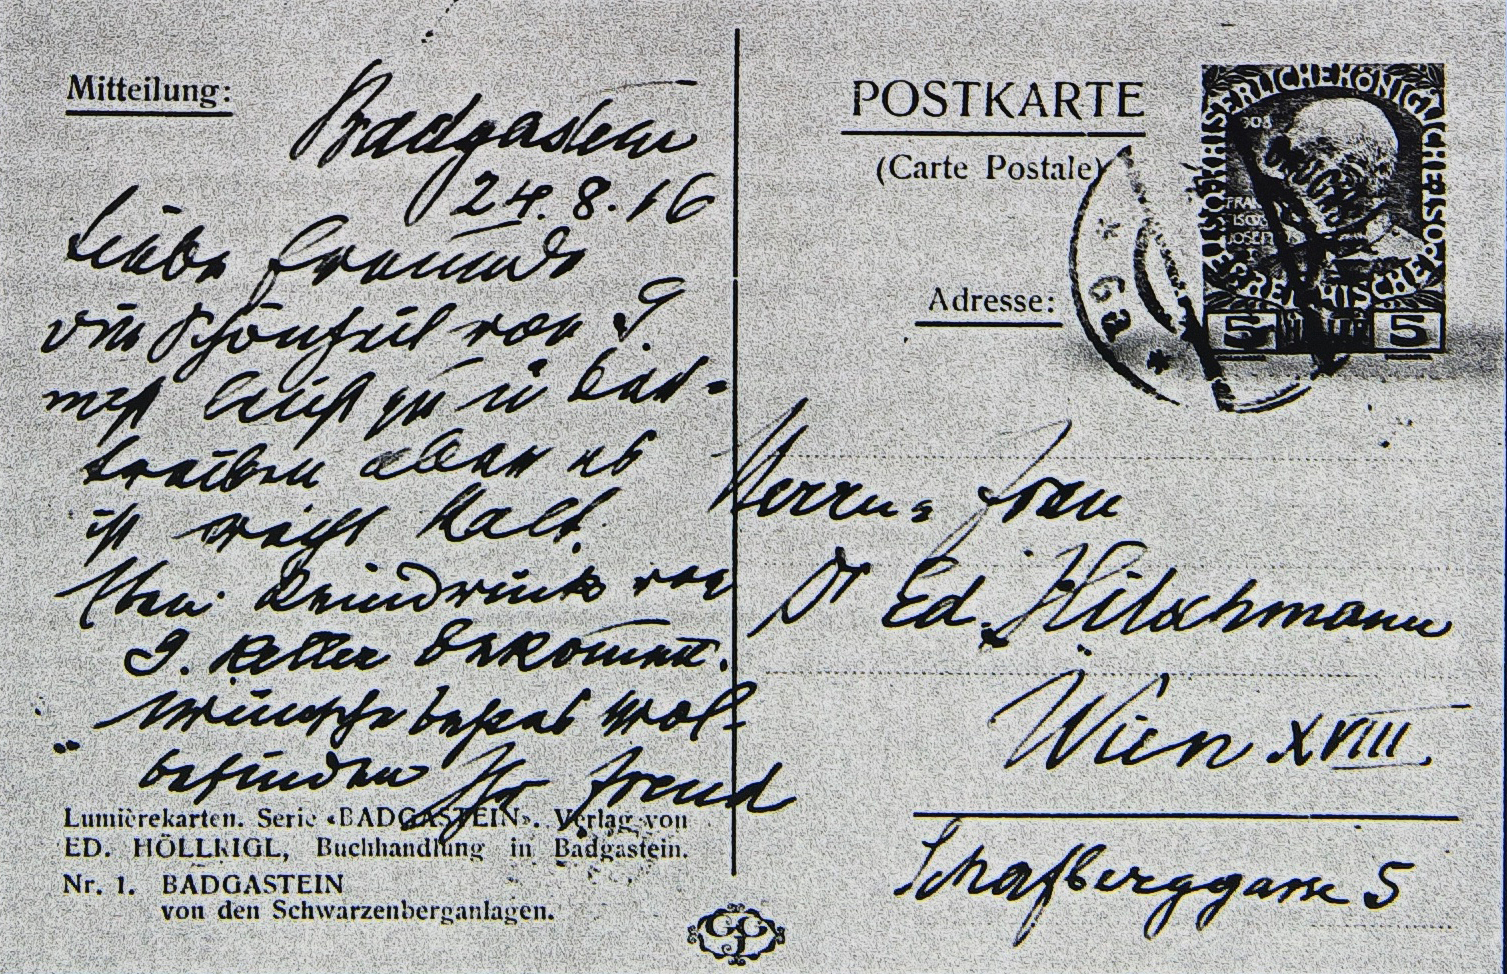 Mitteilung:
Badgastein
24.8.16
Liebe Freunde
Die Schönheit von G.
leicht zu über-
treiben aber es
ist kalt.
Eben von
G. Keller bekommen.
Wünsche bestes Wol-
befinden Ihr Freud
Lumièrekarten. Serie «BADGASTEIN». Verlag von
ED. HÖLLRIGL, Buchhandlung in Badgastein.
Nr. 1. BADGASTEIN
von den Schwarzenberganlagen.
POSTKARTE
(Carte Postale)
Adresse:
KAISERLICHE KÖNIGLICHE ÖSTERREICHISCHE
5 5
Herrn u Frau
Dr Ed. Hitschmann
Wien XVIII
Schafberggasse 5